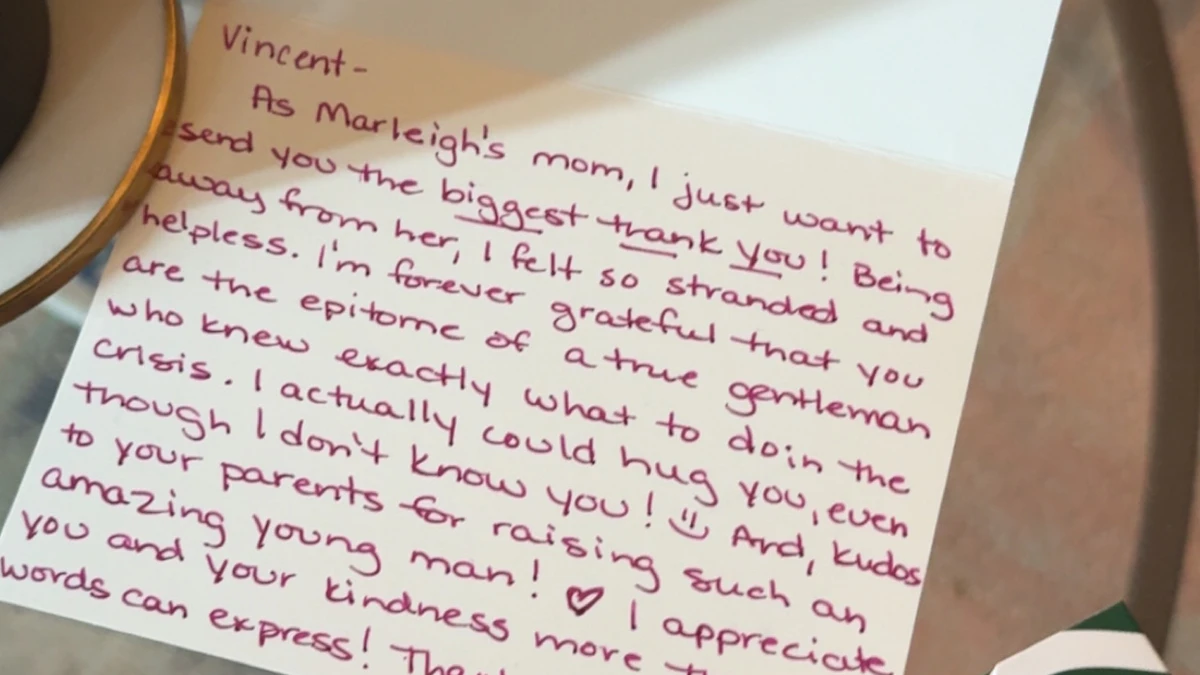 Vincent-
As Marleigh's mom, I just want to
send you the biggest thank you! Being
away from her, I felt so stranded and
helpless. I'm forever grateful that you
are the epitome of a true gentleman
who knew exactly what to do in the
crisis. I actually could hug you, even
though I don't know you! And, kudos
to your parents for raising such an
amazing young man! ♡ I appreciate
you and your kindness more
words can express!